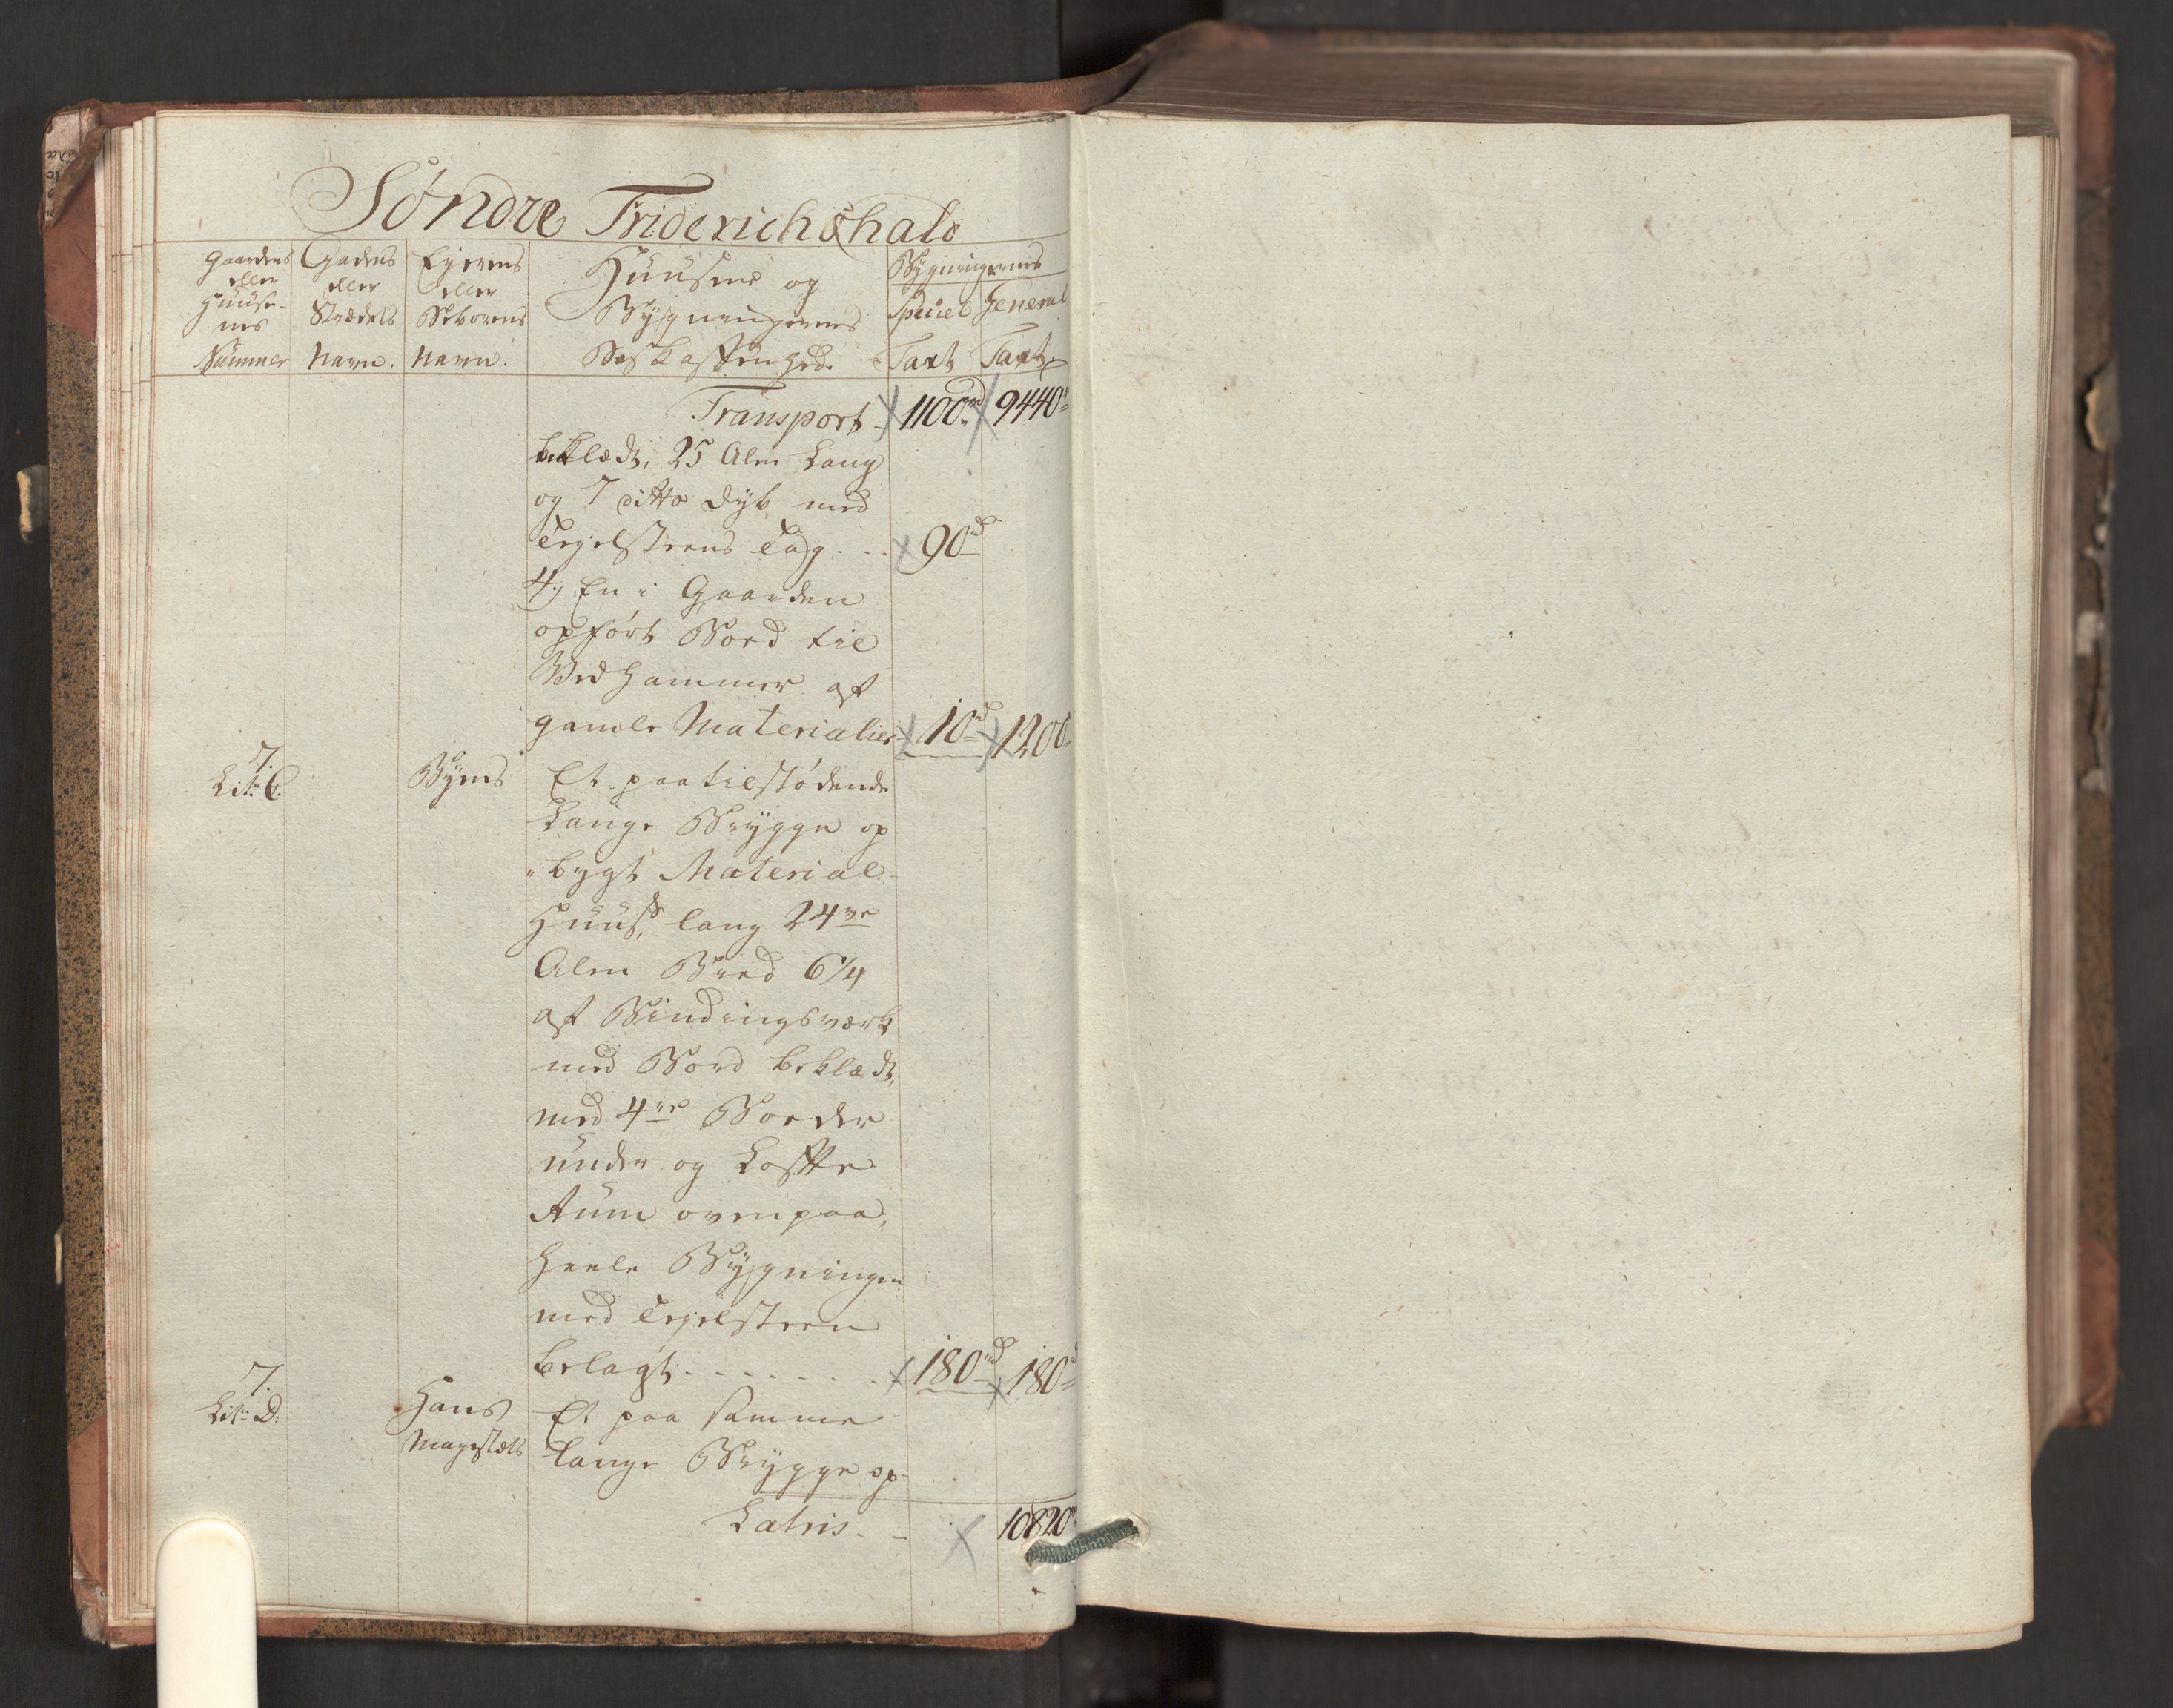 Søndre Friderichshald
Gaardens eller Huuse-nes Nummer
Gadens eller Strædets Navn.
Ejerens eller Beboerens Navn.
Huusene og Bygningernes Beskaffenhed.
Bygningernes
Speciel Taxt
General Taxt
Transport 1100rd 9440"
beklædt, 25 Alen Lang
og 7 ditto dyb med
Tegelsteens Tag . . . 90rd
4) En i Gaarden
opført Bord til
Vedhammer af
gamle Materialier 10rd 1200
7.
Litr: C. Byens Et paa tilstødende
Lange Brygge op-
"bygt Material-
Huus, lang 24ve
Alen Bred 6 1/4
af Bindingsværk
med Bord beklædt,
med 4re Boeder
under og Loffte
Rum ovenpaa,
heele Bygningen
med Tegelsteen
belagt . . . . . . . 180rd 180rd
7.
Litr: D. Hans Magestæts Et paa samme
Lange Brygge op-
Latris. - 10820